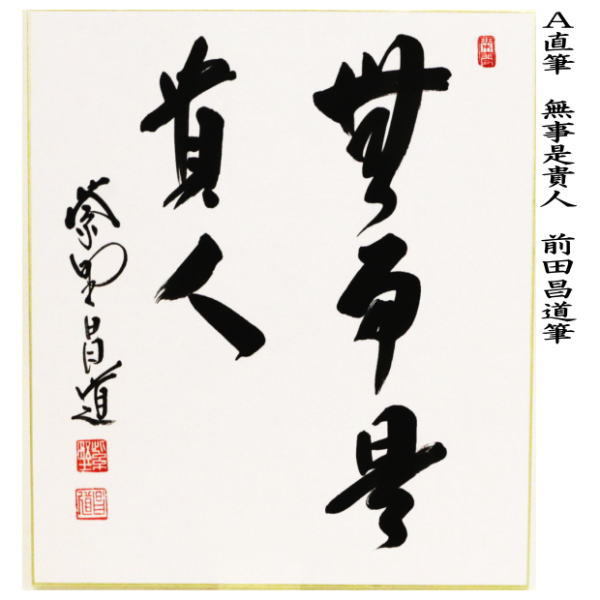 A直筆 無事是貴人 前田昌道筆
無事是
貴人
紫野昌道